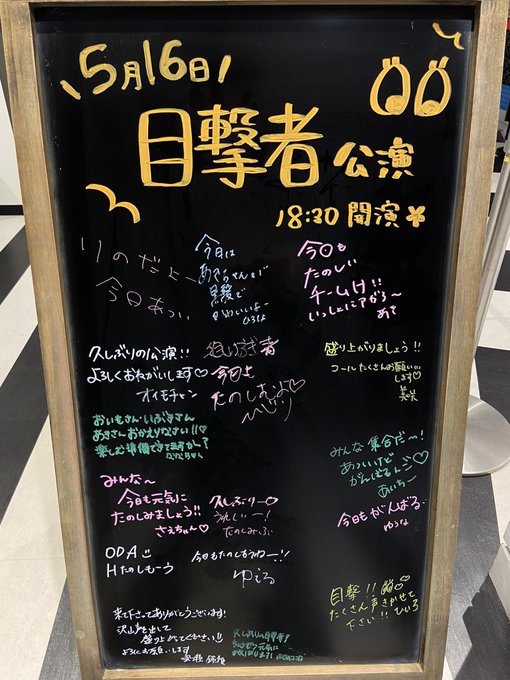 5月16日!
目撃者 公演
18:30 開演
りのだよ〜
今日あつい
今日は
黒髪で
かわいいよー
ひろは
今日も
たのしい
チームH!!
いっしょに
あき
久しぶりの公演!!
よろしくおねがいします♡
オイモチャン
者
今日も
たのしむよ♡
いぶり
盛り上がりましょう!!
コールたくさんお願い…
します♡
美咲
おいもさん いぶきさん
あきさん おかえりなさい!!♡
楽しむ準備できてますか〜?
ななちゃん
みんな 集合だ〜!
あついけど
がんばるンゴ♡
あいちー
みんな〜
今日も元気に
たのしみましょう!!
さえちゃん♡
久しぶり〜♡
うれしい〜!
たのしみぶ
今日もがんばる
ゆうな
ODA
Hたのしもーう
今日もたのしもうね〜!!
ゆえる
目撃!!
たくさん声きかせて
下さい!! ひいろ
来て下さってありがとうございます!
沢山声を出して
盛り上がってください!!
よろしくお願いします
久しぶりの目撃者!
元気に
がんばります!